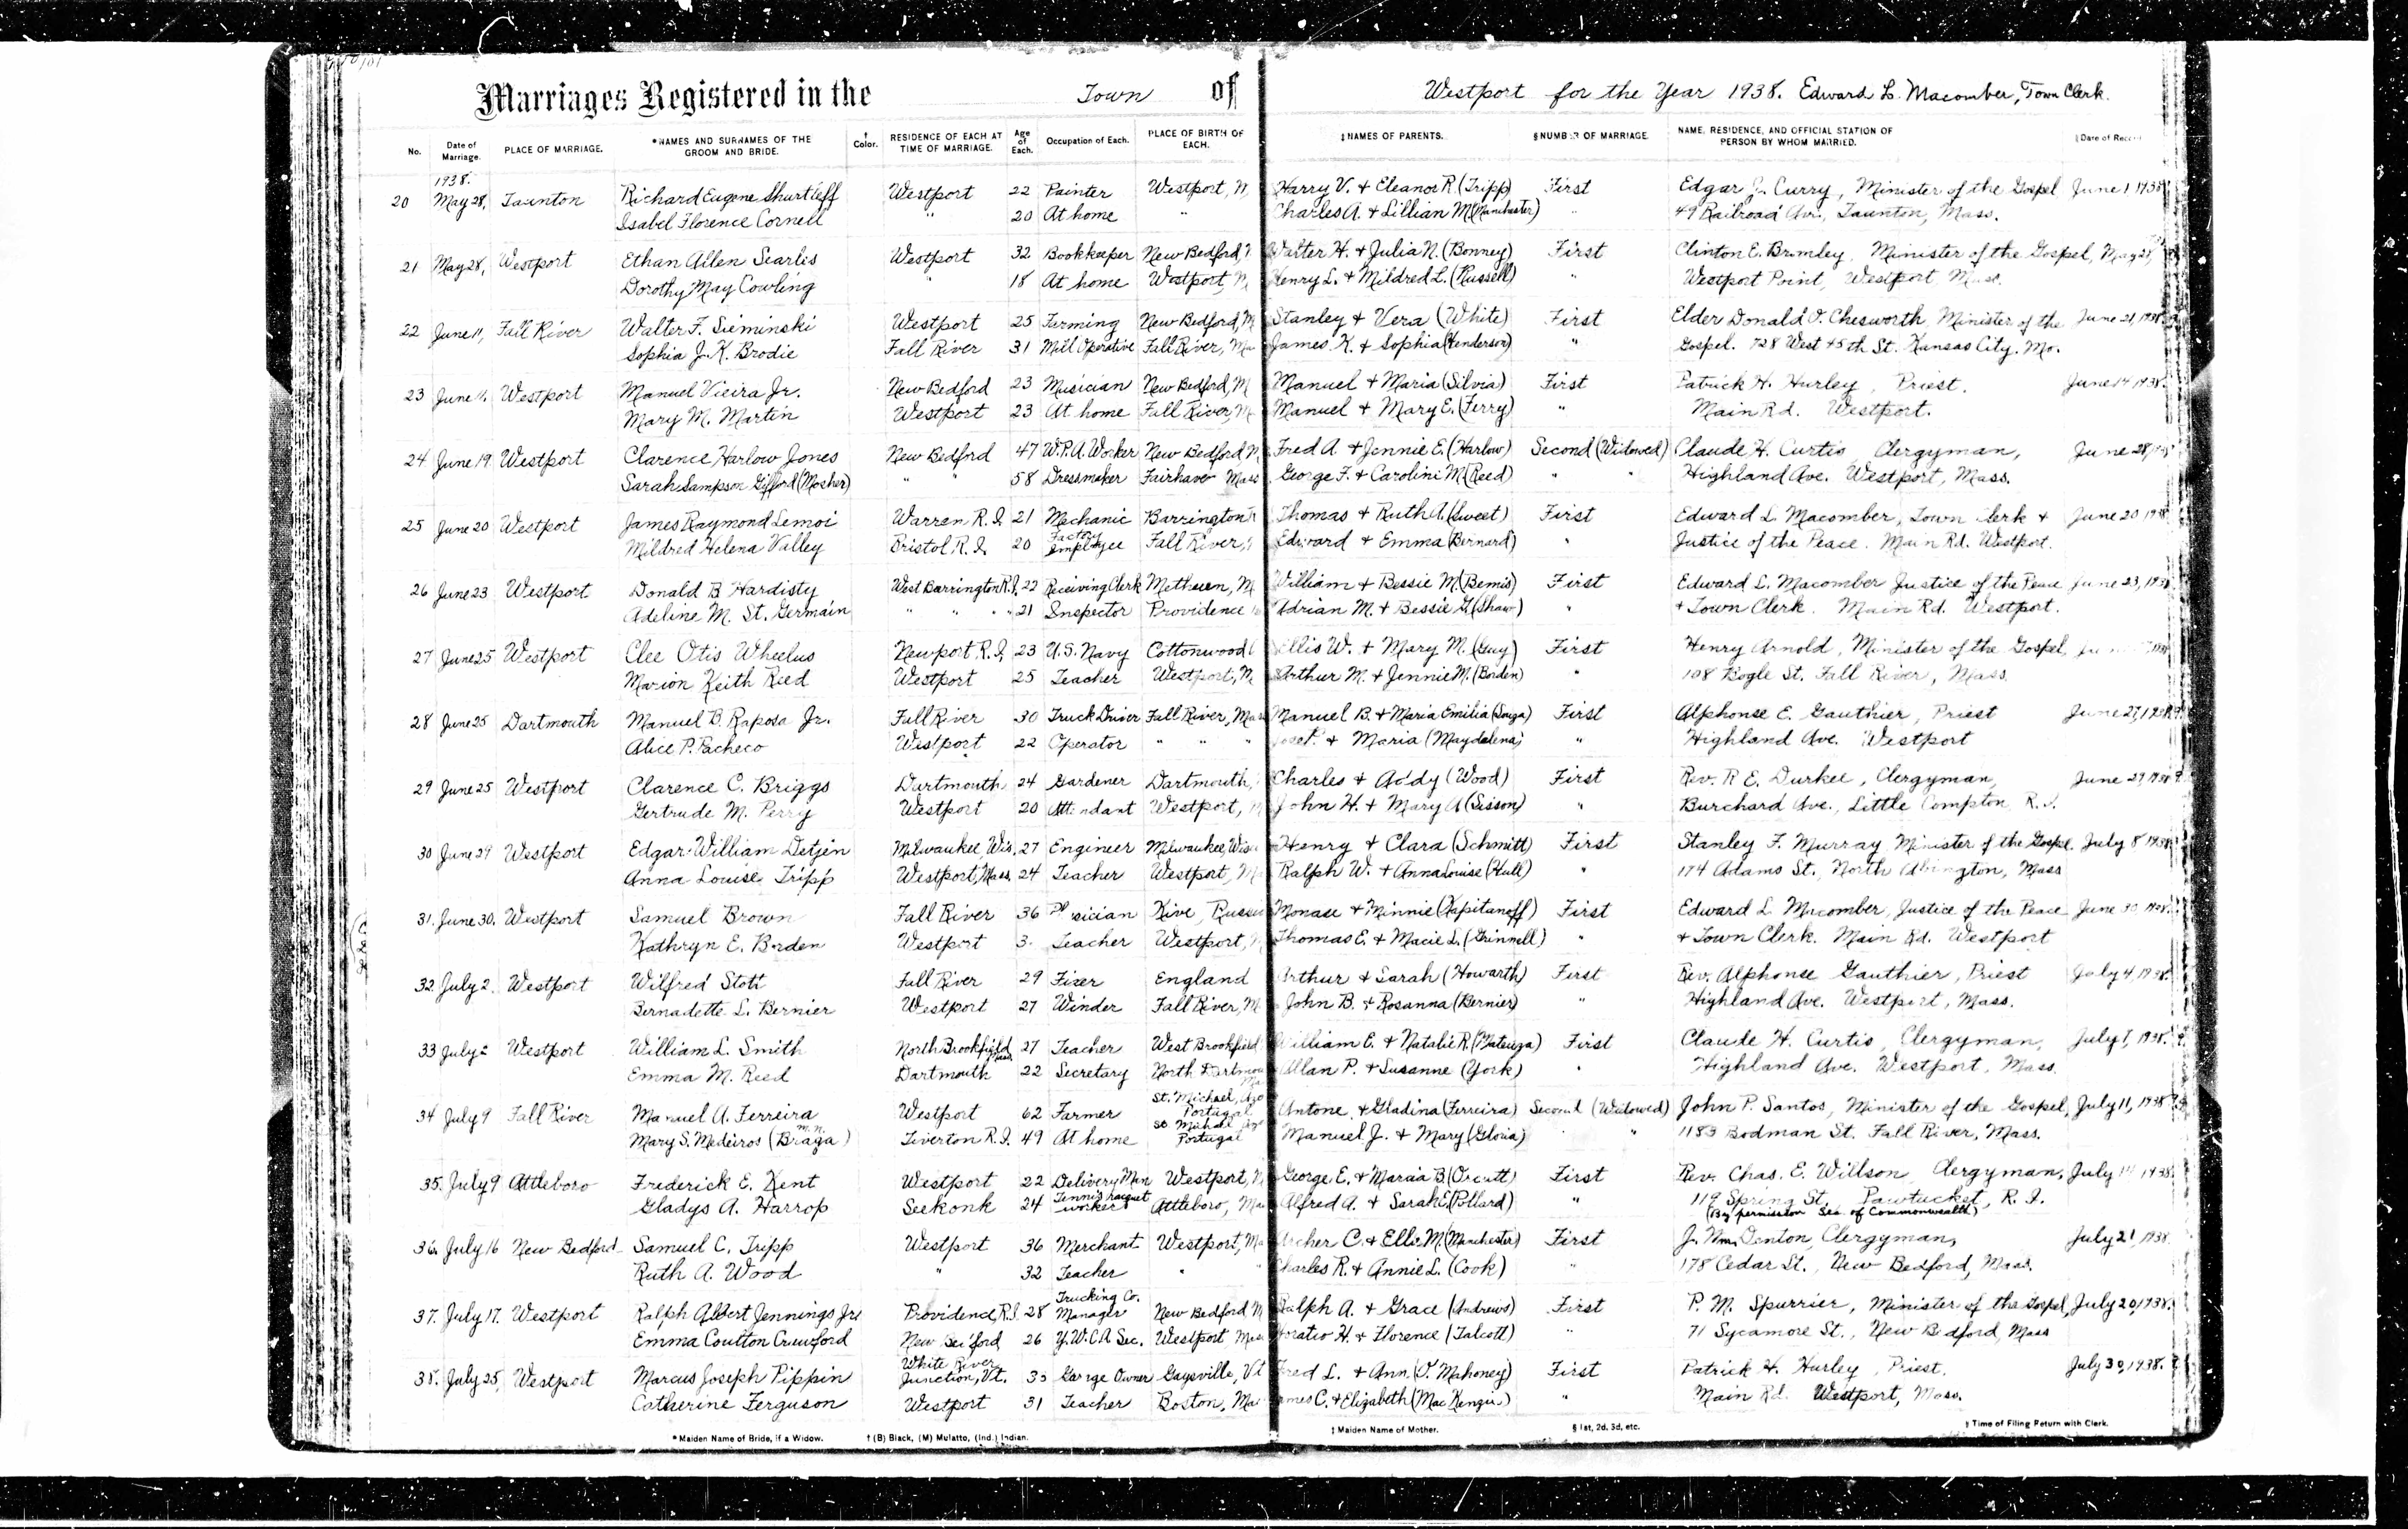 Marriages Registered in the Town of Westport for the Year 1938. Edward L. Macomber, Town Clerk.
No. Date of Marriage. PLACE OF MARRIAGE. *NAMES AND SURNAMES OF THE GROOM AND BRIDE. † Color. RESIDENCE OF EACH AT TIME OF MARRIAGE. Age of Each. Occupation of Each. PLACE OF BIRTH OF EACH. ‡NAMES OF PARENTS. §NUMBER OF MARRIAGE. NAME, RESIDENCE, AND OFFICIAL STATION OF PERSON BY WHOM MARRIED. Date of
1938.
20 May 28, Taunton Richard Eugene Shurtleff Westport 22 Painter Westport, Harry V. + Eleanor R. (Tripp) First Edgar Curry, Minister of the Gospel June 1 1938
Isabel Florence Cornell " 20 At home " Charles A. + Lillian M (Manchester) " 49 Railroad Av., Taunton, Mass.
21 May 28, Westport Ethan Allen Searles Westport 32 Bookkeeper New Bedford, Walter H. + Julia N. (Bonney) First Clinton E. Bromley, Minister of the Gospel,
Dorothy May Cowling " 18 At home Westport, Henry L. + Mildred L. (Russell) " Westport Point, Westport Mass.
22 June 11, Fall River Walter F. Sieminski Westport 25 Farming New Bedford, M Stanley + Vera (White) First Elder Donald O. Chesworth, Minister of the June 21, 1938
Sophia J. K. Brodie Fall River 31 Mill Operative Fall River, Ma James K. + Sophia (Henderson) " Gospel. 728 West 45th St. Kansas City. Mo.
23 June 11, Westport Manuel Vieira Jr. New Bedford 23 Musician New Bedford, M Manuel + Maria (Silvia) First Patrick H. Hurley, Priest. June 14 1938.
Mary M. Martin Westport 23 At home Fall River, M Manuel + Mary E. (Ferry) " Main Rd. Westport.
24 June 19 Westport Clarence Harlow Jones New Bedford 47 W.P.A. Worker New Bedford M Fred A. + Jennie E. (Harlow) Second (Widowed) Claude H. Curtis Clergyman, June 28,
Sarah Sampson Gifford (Mosher) " " 58 Dressmaker Fairhaven Mass George F. + Caroline M. (Reed) " " Highland Ave. Westport, Mass.
25 June 20 Westport James Raymond Lemoi Warren R.I. 21 Mechanic Barrington Thomas + Ruth A. (Sweet) First Edward L. Macomber, Town Clerk + June 20
Mildred Helena Valley Bristol R.I. 20 Factory Employee Fall River, Edward + Emma (Bernard) " Justice of the Peace. Main Rd. Westport.
26 June 23 Westport Donald B. Hardisty West Barrington R.I. 22 Receiving Clerk Methuen, M William + Bessie M. (Bemis) First Edward L. Macomber Justice of the Peace June 23,
Adeline M. St. Germain " " " 21 Inspector Providence Adrian M. + Bessie G. (Shaw) " + Town Clerk. Main Rd. Westport.
27 June 25 Westport Clee Otis Wheelus Newport R.I. 23 U.S. Navy Cottonwood Ellis W. + Mary M. (Guy) First Henry Arnold, Minister of the Gospel,
Marion Keith Reed Westport 25 Teacher Westport, M Arthur M. + Jennie M. (Borden) " 108 Bogle St. Fall River, Mass.
28 June 25 Dartmouth Manuel B. Raposa Jr. Fall River 30 Truck Driver Fall River, Mas Manuel B. + Maria Emilia (Souza) First Alphonse E. Gauthier, Priest June 27,
Alice P. Pacheco Westport 22 Operator " " " + Maria (Magdalena) " Highland Ave. Westport
29 June 25 Westport Clarence C. Briggs Dartmouth 24 Gardener Dartmouth, Charles + (Wood) First Rev. R E. Durkee, Clergyman, June 29,
Gertrude M. Perry Westport 20 Attendant Westport, John H. + Mary A (Sisson) " Burchard Ave., Little Compton R.I.
30 June 29 Westport Edgar William Detjen Milwaukee, Wis. 27 Engineer Milwaukee, Wis Henry + Clara (Schmitt) First Stanley F. Murray Minister of the Gospel. July 8 1938
Anna Louise Tripp Westport, Mass. 24 Teacher Westport, M Ralph W. + Anna Louise (Hull) " 174 Adams St., North Abington, Mass
31. June 30. Westport Samuel Brown Fall River 36 Physician Kive, Russia Monase + Minnie (Kapitanoff) First Edward L. Macomber, Justice of the Peace June 30
Kathryn E. Borden Westport Teacher Westport, Thomas E. + Macie L. (Grinnell) " + Town Clerk. Main Rd. Westport
32 July 2. Westport Wilfred Stott Fall River 29 Fixer England Arthur + Sarah (Howarth) First Rev. Alphonse Gauthier, Priest July 4, 1938.
Bernadette L. Bernier Westport 27 Winder Fall River, M John B. + Rosanna (Bernier) " Highland Ave. Westport, Mass.
33 July Westport William L. Smith North Brookfield Mass. 27 Teacher West Brookfield William E. + Natalie R. First Claude H. Curtis Clergyman, July 7, 1938.
Emma M. Reed Dartmouth 22 Secretary North Dartmou Ma Allan P. + Susanne (York) " Highland Ave. Westport, Mass.
34 July 9 Fall River Manuel A. Ferreira Westport 62 Farmer St. Michael, Azo Portugal Antone + Gladina (Ferreira) Second (Widowed) John P. Santos, Minister of the Gospel, July 11, 1938
Mary S. Medeiros (m.n. Braga) Tiverton R.I. 49 At home St Michael Az Portugal Manuel J. + Mary (Gloria) " 1183 Bodman St. Fall River, Mass.
35. July 9 Attleboro Frederick E. Kent Westport 22 Delivery Man Westport, George E. + Maria B. (Orcutt) First Rev. Chas. E. Willson Clergyman, July 1938
Gladys A. Harrop Seekonk 24 Tennis racquet worker Attleboro, Ma Alfred A. + Sarah E. (Pollard) " 119 Spring St. Pawtucket, R.I.
(By permission Sec. of Commonwealth)
36. July 16 New Bedford Samuel C. Tripp Westport 36 Merchant Westport, Ma Archer C. + M. (Manchester) First J. Wm. Denton, Clergyman, July 21, 1938
Ruth A. Wood " 32 Teacher " " Charles R. + Annie L. (Cook) " 178 Cedar St., New Bedford, Mass.
37. July 17. Westport Ralph Albert Jennings Jr. Providence, R.I. 28 Trucking Co. Manager New Bedford M Ralph A. + Grace (Andrews) First P. M. Spurrier, Minister of the Gospel, July 20, 1938.
Emma Coutton Crawford New Bedford 26 Y.W.C.A Sec. Westport Mas Horatio H. + Florence (Talcott) " 71 Sycamore St., New Bedford, Mass
38. July 25, Westport Marcus Joseph Pippin White River Junction, Vt. Garage Owner Gaysville, Vt Fred L. + Ann (O'Mahoney) First Patrick H. Hurley, Priest. July 30, 1938.
Catherine Ferguson Westport 31 Teacher Boston, Ma James C. + Elizabeth (MacKenzie) " Main Rd. Westport, Mass.
*Maiden Name of Bride, if a Widow. † (B) Black, (M) Mulatto, (Ind.) Indian. ‡ Maiden Name of Mother. § 1st, 2d, 3d, etc. Time of Filing Return with Clerk.